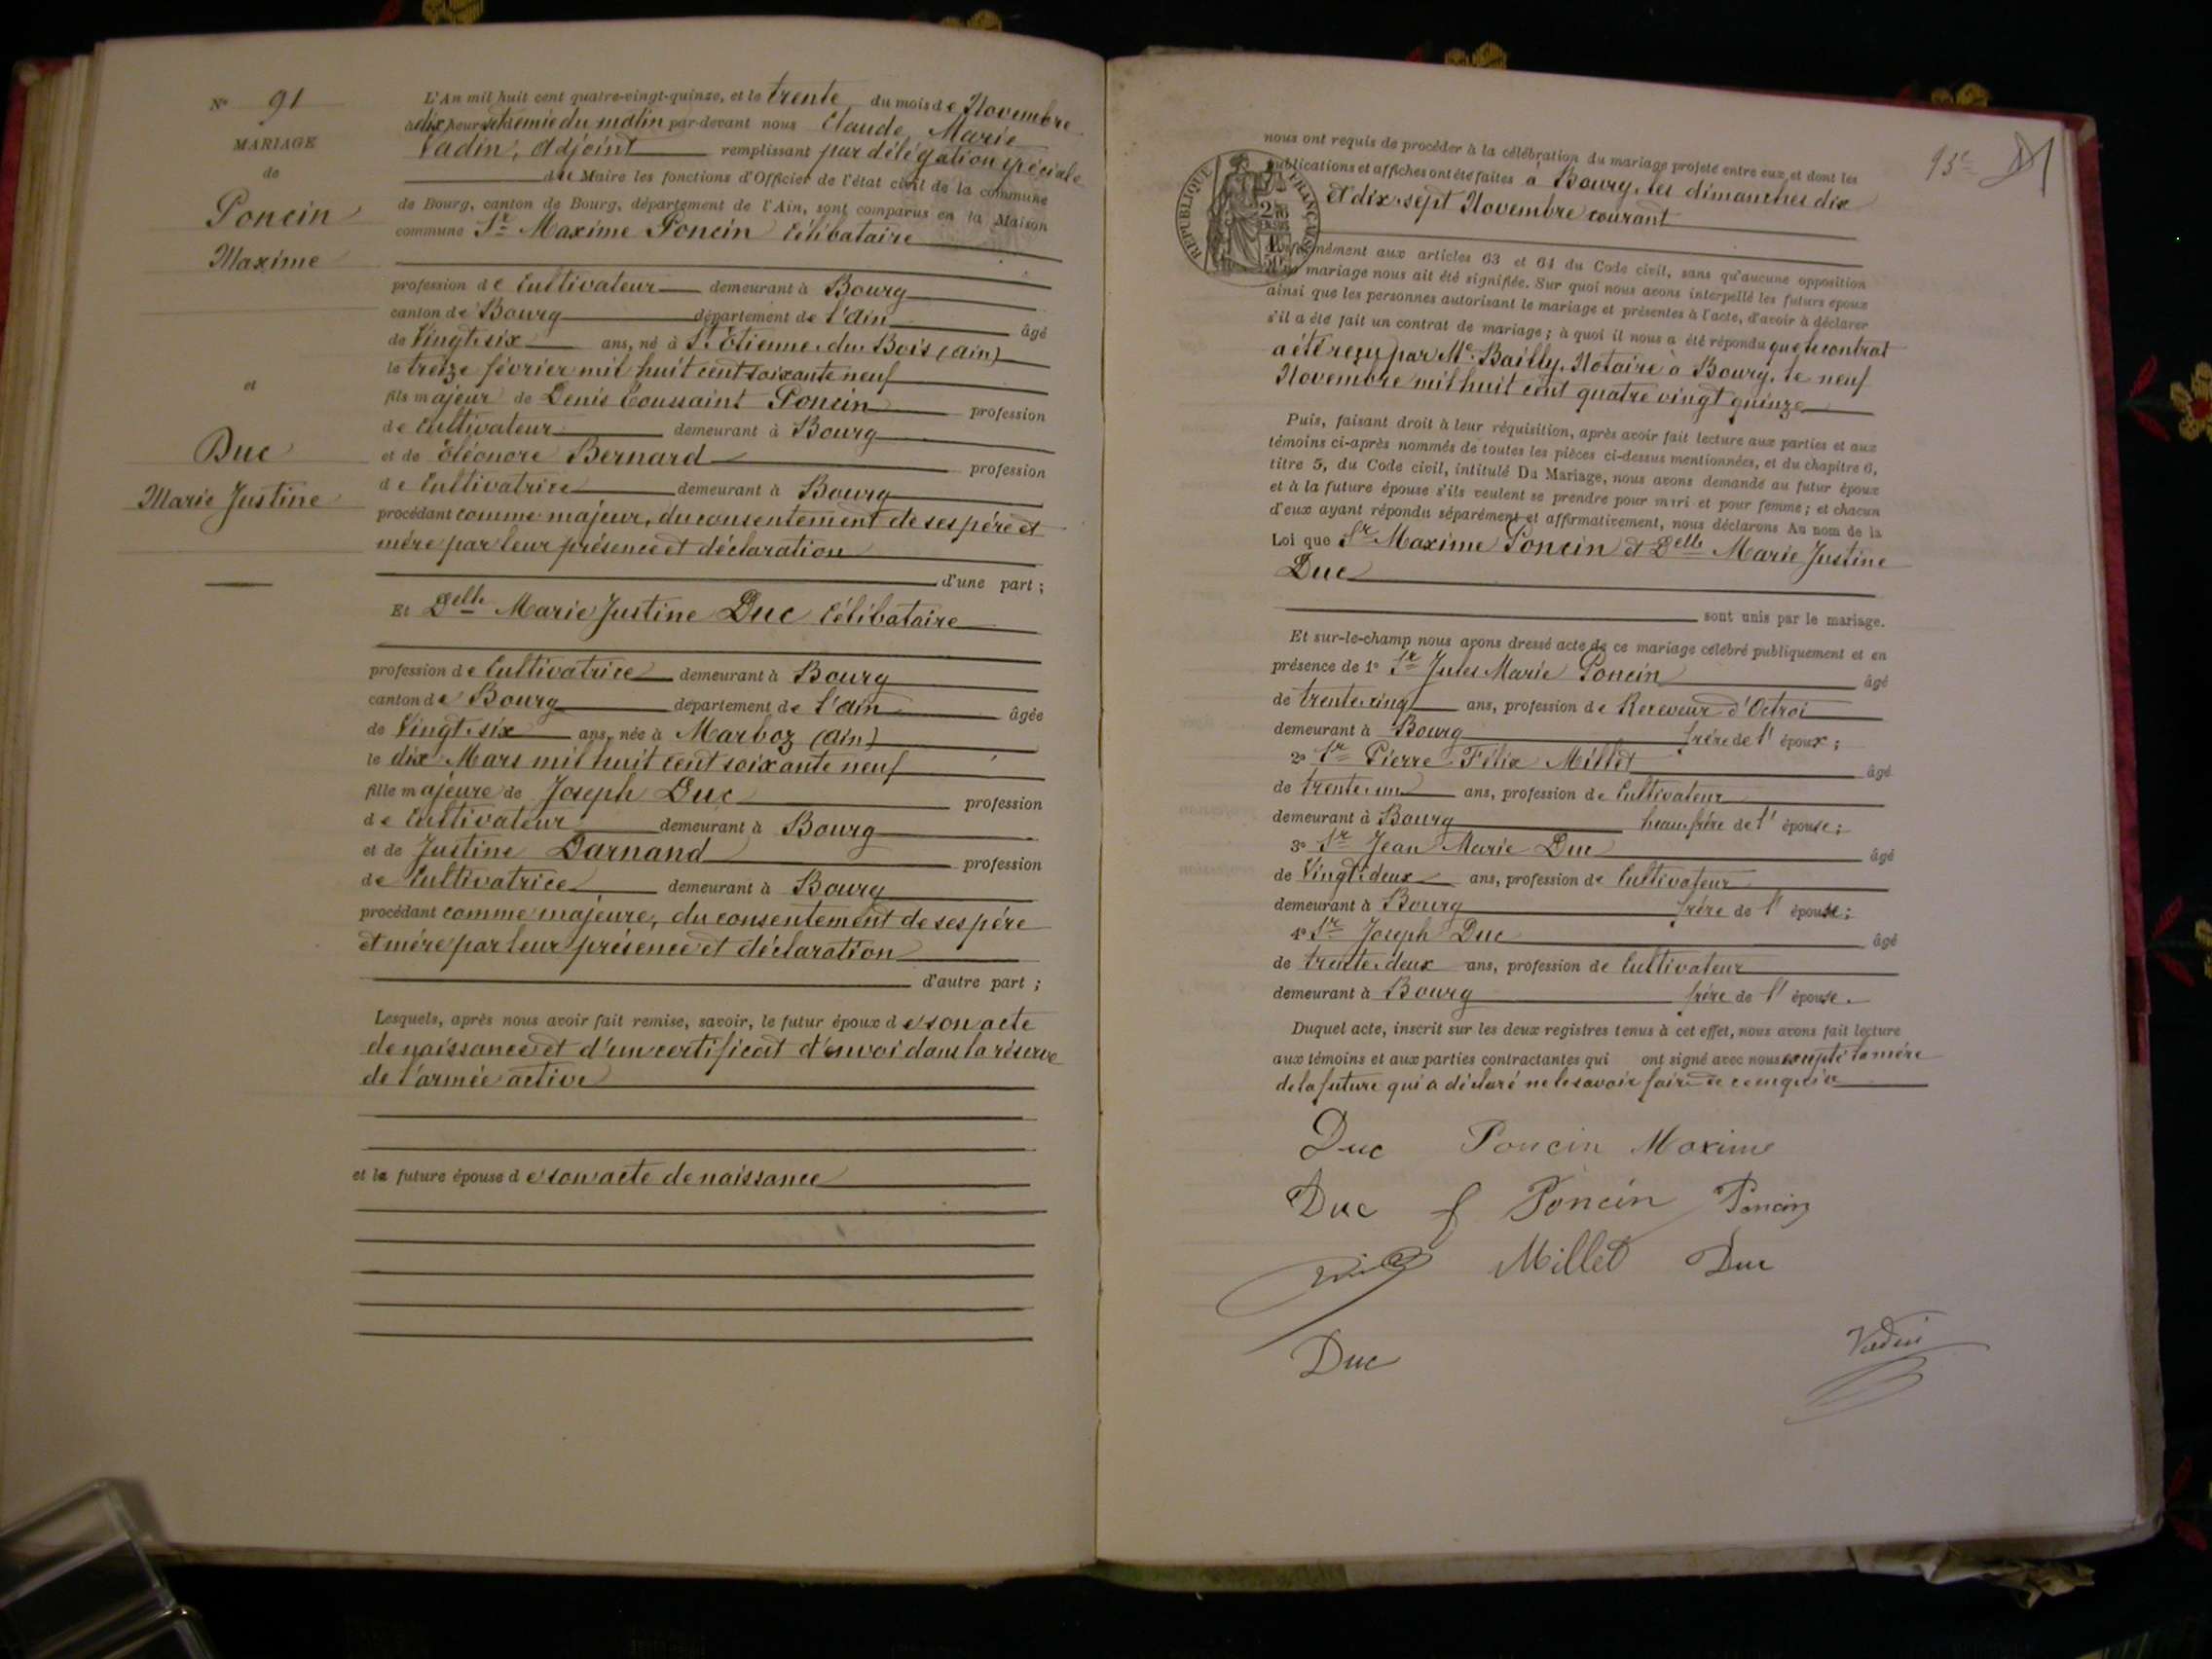 N° 91
MARIAGE
de
Poncin
Maxime
et
Duc
Marie Justine
L'An mil huit cent quatre-vingt-quinze, et le trente du mois de Novembre
à dix heures et demie du matin par-devant nous Claude Marie
Vadin, Adjoint remplissant par délégation spéciale
du Maire les fonctions d'Officier de l'état civil de la commune
de Bourg, canton de Bourg, département de l'Ain, sont comparus en la Maison
commune Sr Maxime Poncin Célibataire
profession de Cultivateur demeurant à Bourg
canton de Bourg département de l'Ain âgé
de Vingt-six ans, né à St Etienne-du-Bois (Ain)
le treize février mil huit cent soixante neuf
fils majeur de Denis Toussaint Poncin profession
de Cultivateur demeurant à Bourg
et de Eléonore Bernard profession
de Cultivatrice demeurant à Bourg
procédant comme majeur, du consentement de ses père et
mère par leur présence et déclaration
d'une part ;
Et Delle Marie Justine Duc Célibataire
profession de Cultivatrice demeurant à Bourg
canton de Bourg département de l'Ain âgée
de Vingt-six ans, née à Marboz (Ain)
le dix Mars mil huit cent soixante neuf
fille majeure de Joseph Duc profession
de Cultivateur demeurant à Bourg
et de Justine Darnand profession
de Cultivatrice demeurant à Bourg
procédant comme majeure, du consentement de ses père
et mère par leur présence et déclaration
d'autre part ;
Lesquels, après nous avoir fait remise, savoir, le futur époux de son acte
de naissance et d'un certificat d'envoi dans la réserve
de l'armée active
et la future épouse de son acte de naissance
93e
REPUBLIQUE FRANÇAISE
nous ont requis de procéder à la célébration du mariage projeté entre eux, et dont les
publications et affiches ont été faites à Bourg, les dimanches dix
et dix-sept Novembre courant
conformément aux articles 63 et 64 du Code civil, sans qu'aucune opposition
mariage nous ait été signifiée. Sur quoi nous avons interpellé les futurs époux
ainsi que les personnes autorisant le mariage et présentes à l'acte, d'avoir à déclarer
s'il a été fait un contrat de mariage ; à quoi il nous a été répondu que le contrat
a été reçu par Me Bailly, Notaire à Bourg, le neuf
Novembre mil huit cent quatre vingt quinze
Puis, faisant droit à leur réquisition, après avoir fait lecture aux parties et aux
témoins ci-après nommés de toutes les pièces ci-dessus mentionnées, et du chapitre 6,
titre 5, du Code civil, intitulé Du Mariage, nous avons demandé au futur époux
et à la future épouse s'ils veulent se prendre pour mari et pour femme ; et chacun
d'eux ayant répondu séparément et affirmativement, nous déclarons Au nom de la
Loi que Sr Maxime Poncin et Delle Marie Justine
Duc
sont unis par le mariage.
Et sur-le-champ nous avons dressé acte de ce mariage célébré publiquement et en
présence de 1° Sr Jules Marie Poncin âgé
de trente-cinq ans, profession de Receveur d'Octroi
demeurant à Bourg frère de l'époux ;
2° Sr Pierre Félix Millet âgé
de trente-un ans, profession de Cultivateur
demeurant à Bourg beau-frère de l'épouse ;
3° Sr Jean Marie Duc âgé
de Vingt-deux ans, profession de Cultivateur
demeurant à Bourg frère de l'épouse ;
4° Sr Joseph Duc âgé
de trente-deux ans, profession de Cultivateur
demeurant à Bourg frère de l'épouse.
Duquel acte, inscrit sur les deux registres tenus à cet effet, nous avons fait lecture
aux témoins et aux parties contractantes qui ont signé avec nous excepté la mère
de la future qui a déclaré ne le savoir faire de ce enquise
Duc Poncin Maxime
Duc Poncin Poncin
Millet Duc
Duc
Vadin